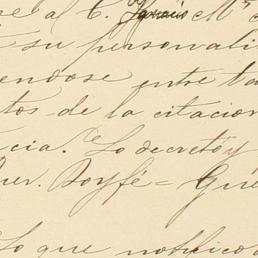 al C. Ignacio M
su personali
endose entre ta
tos de la citacion
cia. Lo decretó y
Doyfé = Gue
Lo que notifico